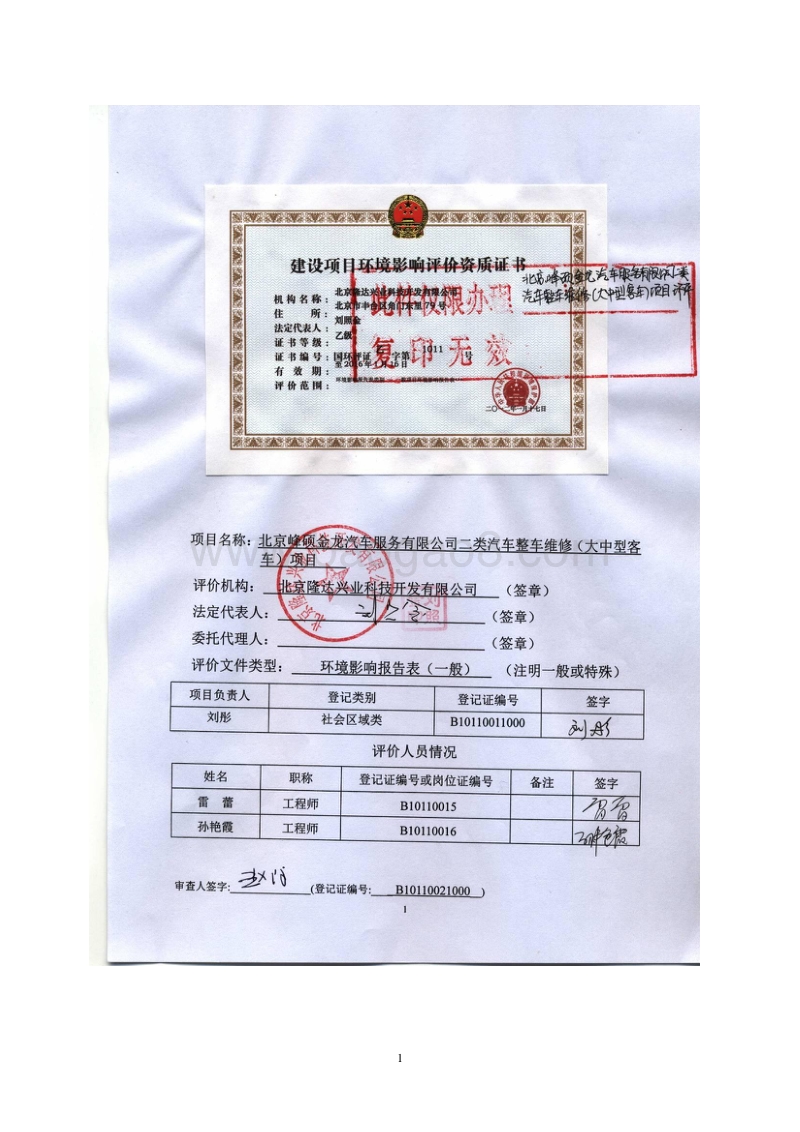 建设项目环境影响评价资质证书
北京峰硕金龙汽车服务有限公司二类
汽车整车维修(大中型客车)项目环评
此件仅限办理
复印无效
机构名称：北京隆达兴业科技开发有限公司
住所：北京市丰台区角门东里79号
法定代表人：刘照金
证书等级：乙级
证书编号：国环评证 字第 1011 号
有效期：至2016年
评价范围：
二〇一二年一月十七日
项目名称：北京峰硕金龙汽车服务有限公司二类汽车整车维修（大中型客
车）项目
评价机构：北京隆达兴业科技开发有限公司（签章）
法定代表人：（签章）
委托代理人：（签章）
评价文件类型：环境影响报告表（一般）（注明一般或特殊）
项目负责人 登记类别 登记证编号 签字
刘彤 社会区域类 B10110011000 刘彤
评价人员情况
姓名 职称 登记证编号或岗位证编号 备注 签字
雷 蕾 工程师 B10110015
孙艳霞 工程师 B10110016 孙艳霞
审查人签字: (登记证编号: B10110021000 )
1
1